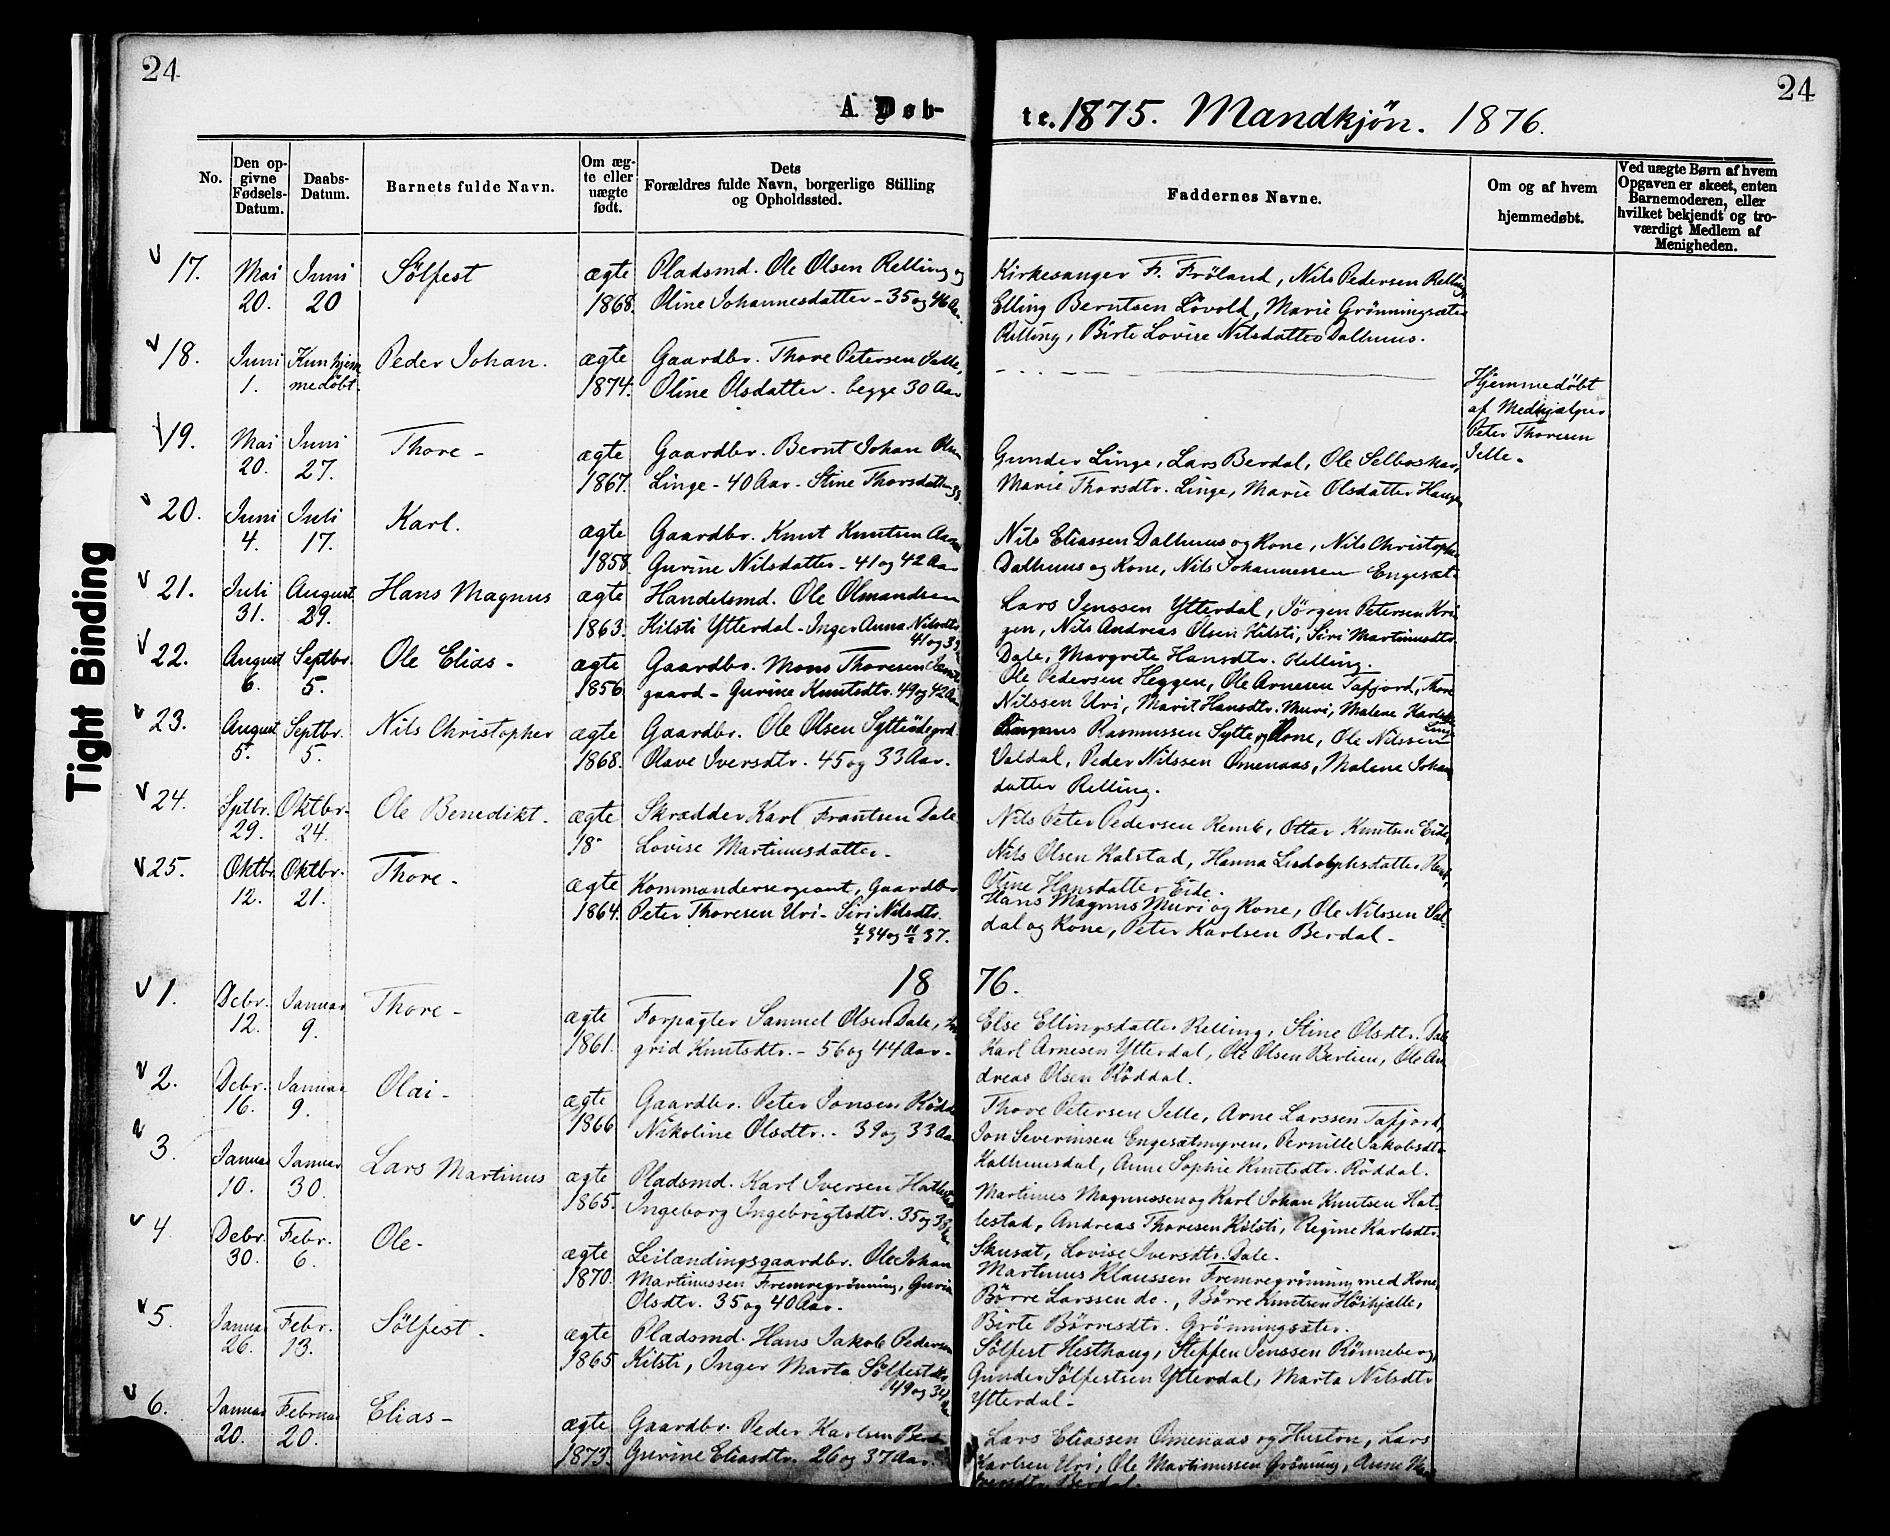 24
24
A. Døb-
te. 1875. Mandkjön. 1876.
No.
Den op-
givne
Fødsels-
Datum.
Daabs-
Datum.
Barnets fulde Navn.
Om æg-
te eller
uægte
født.
Dets
Forældres fulde Navn, borgerlige Stilling
og Opholdssted.
Faddernes Navne.
Om og af hvem
hjemmedøbt.
Ved uægte Børn af hvem
Opgaven er skeet, enten
Barnemoderen, eller
hvilket bekjendt og tro-
værdigt Medlem af
Menigheden.
Tight Binding
17. Mai Juni Sölfest ægte Pladsmd. Ole Olsen Relling og
20. 20 1868. Oline Johannesdatter - 35 og 46 Aar.
Kirkesanger F. Fröland, Nils Pedersen Relling
Elling Berntsen Lövold, Marie Grönningsæter
Relling, Birte Lovise Nilsdatter Dalhuus.
18. Juni Kun hjem Peder Johan. ægte Gaardbr. Thore Petersen Jelle,
1. medöbt. 1874. Oline Olsdatter. begge 30 Aar
Hjemmedöbt
af Medhjælper
Peter Thoresen
Jelle.
19. Mai Juni Thore - ægte Gaardbr. Bernt Johan
20. 27. 1867. Linge - 40 Aar - Stine Thorsdatter 38.
Gunder Linge, Lars Berdal, Ole Selboskar,
Marie Thorsdtr. Linge, Marie Olsdatter
20. Juni Juli Karl. ægte Gaardbr. Knut Knutsen
4. 17. 1858. Gurine Nilsdatter - 41 og 42 Aar
Nils Eliassen Dalhuus og Kone, Nils Christopher
Dalhuus og Kone, Nils Johannessen Engesæt.
21. Juli August Hans Magnus ægte Handelsmd. Ole Olmandsen
31. 29. 1863. Kilsti Ytterdal - Inger Anna Nilsdtr.
41 og 33
Lars Jenssen Ytterdal, Jörgen Petersen Kri
gen, Nils Andreas Olsen Kilsti, Siri Martinusdtr.
Dale, Margrete Hansdtr. Relling.
22. August Septbr. Ole Elias - ægte Gaardbr. Mons Thoresen
6. 5. 1856 gaard - Gurine Knutsdtr. 49 og 42 Aar
Ole Pedersen Heggen, Ole Arnesen Tafjord, Thore
Nilssen Uri, Marit Hansdtr. Muri, Malene
Linge
23. August Septbr. Nils Christopher ægte Gaardbr. Ole Olsen Sylteödegrd
5. 5. 1868. Olave Iversdtr. 45 og 33 Aar.
Rasmus Rasmussen Sylte og Kone, Ole Nilssen
Valdal, Peder Nilssen Omenaas, Malene Johan
datter Relling.
24. Sptbr. Oktbr. Ole Benedikt. ægte Skrædder Karl Frantsen Dale
29. 24. 18- Lovise Martinusdatter.
Nils Peter Pedersen Remb, Ottar Knutsen Eide,
Nils Olsen Kalstad, Hanna Ludolphsdatter
Oline Hansdatter Eide.
25. Oktbr. Oktbr. Thore. ægte Kommandersergeant, Gaardbr
12. 21. 1864. Peter Thoresen Uri - Siri Nilsdtr.
34 og 37.
Hans Magnus Muri og Kone, Ole Nilssen Val-
dal og Kone, Peter Karlsen Berdal.
1876.
1. Debr. Januar Thore - ægte Forpagter Samuel Olsen Dale, In
12. 9. 1861. grid Knutsdtr. - 56 og 44 Aar.
Else Ellingsdatter Relling, Stine Olsdtr. Dale
Karl Arnesen Ytterdal, Ole Olsen Berlien, Ole An
dreas Olsen Röddal.
2. Debr. Januar Olai - ægte Gaardbr. Peter Jonsen Rödd
16. 9. 1866 Nikoline Olsdtr. - 39 og 33 Aar
Thore Petersen Jelle, Arne Larssen Tafjord,
Jon Severinsen Engesætmyren, Pernille Jakobsdtr
Kalhuusdal, Anne Sophie Knutsdtr. Röddal.
3. Januar Januar Lars Martinus ægte Pladsmd. Karl Iversen Hatlestad
10. 30. 1865. Ingeborg Ingebrigtsdtr. 35 og 33
Martinus Magnussen og Karl Johan Knutsen Hat-
lestad, Andreas Thoresen Kilsti, Regine Karlsdtr.
Skusæt, Lovise Iversdtr. Dale.
4. Debr. Febr. Ole - ægte Leilændingsgaardbr. Ole Johan
30. 6. 1870. Martinussen Fremregrönning, Gurin
Olsdtr. 35 og 40 Aar.
Martinus Klaussen Fremregrönning med Kone,
Börre Larssen do., Börre Knutsen Höshjelle,
Birte Börresdtr. Grönningsæter.
5. Januar Febr. Sölfest - ægte Pladsmd. Hans Jakob Pedersen
26. 13. 1865 Kilsti, Inger Marta Sölfestdtr.
49 og 34
Sölfest Hesthaug, Steffen Jenssen Rönneberg,
Gunder Sölfestsen Ytterdal, Marta Nilsdtr
Ytterdal -
6. Januar Februar Elias - ægte Gaardbr. Peder Karlsen Berdal
20. 20. 1873. Gurine Eliasdtr. 26 og 37 Aar.
Lars Eliassen Omenaas og Hustru, Lars
Karlsen Uri, Ole Martinussen Grönning, Anne
Berdal.